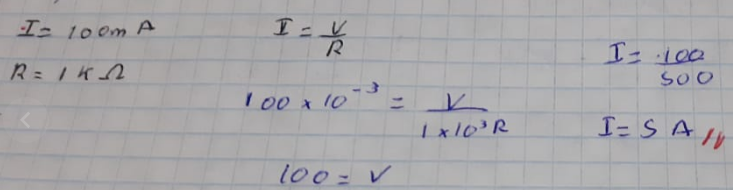 I = 100m A
R = 1 K Ω
I = V/R
100 × 10⁻³ = V/1 × 10³R
100 = V
I = 100/500
I = 5 A //